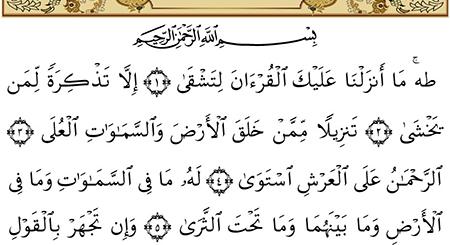 بِسْمِ ٱللَّهِ ٱلرَّحْمَٰنِ ٱلرَّحِيمِ
طه ۚ مَا أَنزَلْنَا عَلَيْكَ ٱلْقُرْءَانَ لِتَشْقَىٰ ﴿١﴾ إِلَّا تَذْكِرَةً لِّمَن
يَخْشَىٰ ﴿٢﴾ تَنزِيلًا مِّمَّنْ خَلَقَ ٱلْأَرْضَ وَٱلسَّمَٰوَٰتِ ٱلْعُلَى ﴿٣﴾
ٱلرَّحْمَٰنُ عَلَى ٱلْعَرْشِ ٱسْتَوَىٰ ﴿٤﴾ لَهُۥ مَا فِى ٱلسَّمَٰوَٰتِ وَمَا فِى
ٱلْأَرْضِ وَمَا بَيْنَهُمَا وَمَا تَحْتَ ٱلثَّرَىٰ ﴿٥﴾ وَإِن تَجْهَرْ بِٱلْقَوْلِ